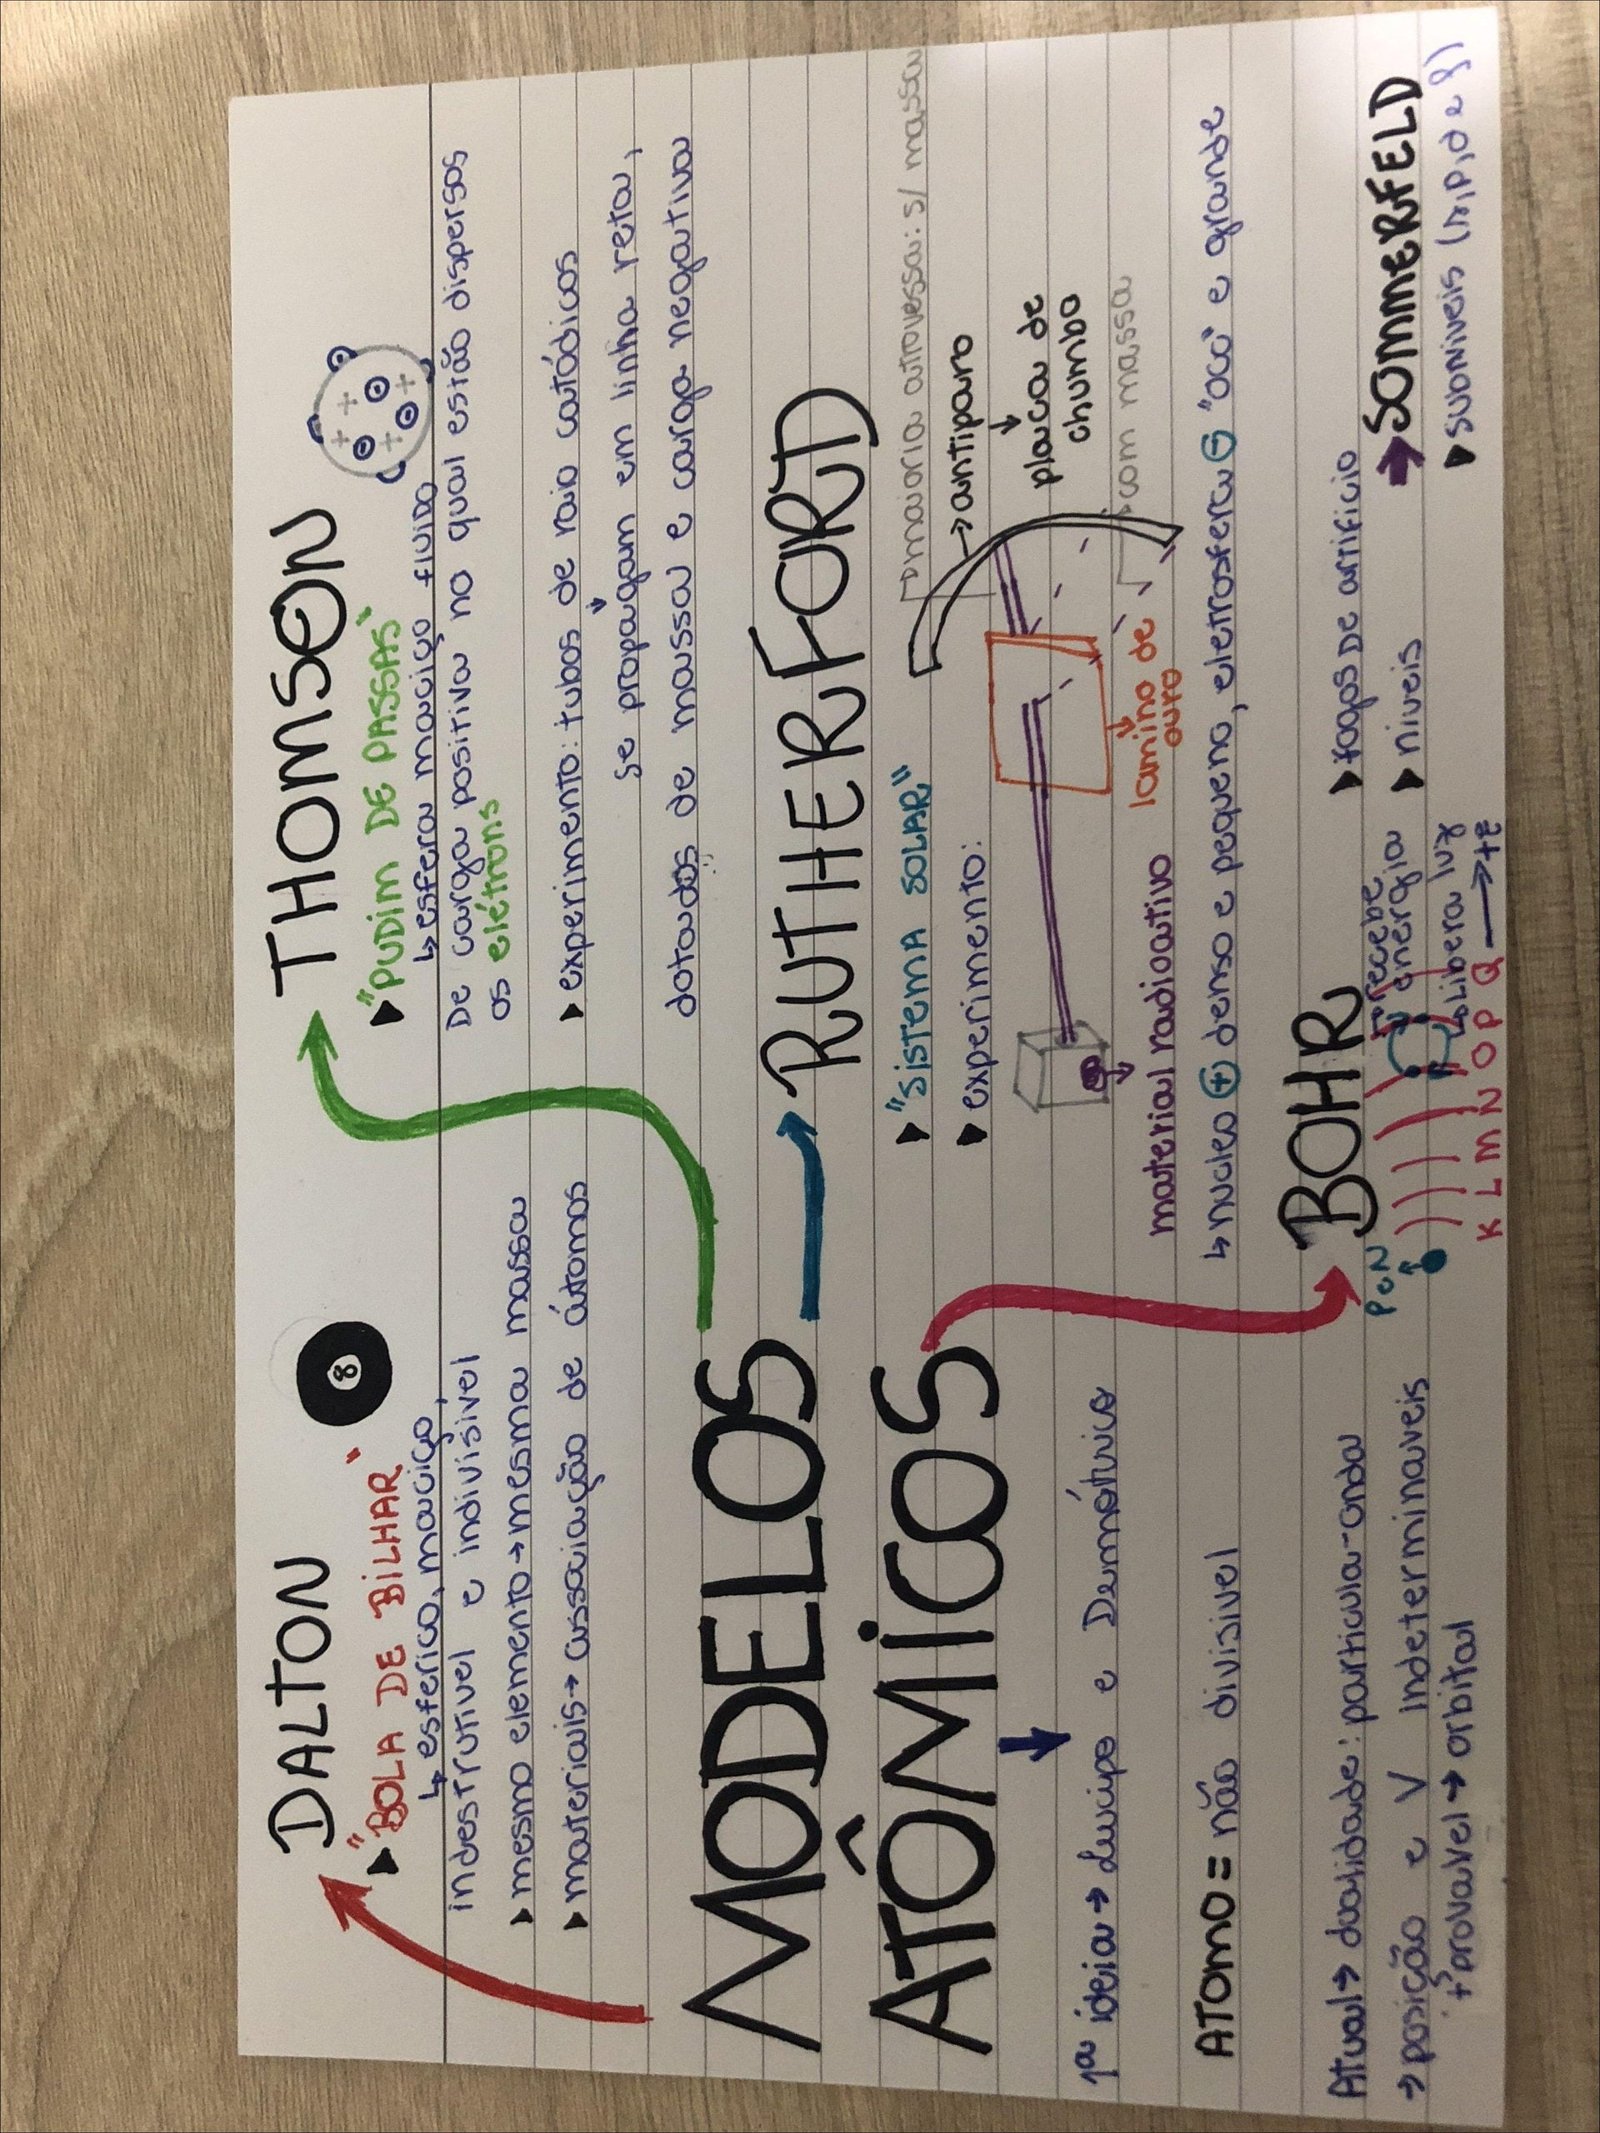 DALTON
8
"BOLA DE BILHAR"
↳ esferico, maciço,
indestrutivel e indivisível
▸ mesmo elemento → mesma massa
▸ materiais → associação de átomos
THOMSON
"PUDIM DE PASSAS"
↳ esfera maciço fluido
De carga positiva no qual estão dispersos
os elétrons
▸ experimento: tubos de raio catódicos
se propagam em linha reta,
dotados de massa e carga negativa
MODELOS
ATÔMICOS
1ª ideia → Leucipo e Demótrico
ATOMO = não divisivel
Atual → dualidade: particula-onda
→ posição e V indeterminaveis
+ provavel → orbital
RUTHERFORD
▸ "SISTEMA SOLAR"
▸ experimento:
maioria atravessa: s/ massa
→ antiparo
placa de
chumbo
com massa
lamina de
ouro
material radioativo
↳ nucleo + denso e pequeno, eletrosfera - "oca" e grande
BOHR
P e N
recebe
energia
Libera luz
K L M N O P Q → +E
▸ fogos de artificio
▸ niveis
→ SOMMERFELD
▸ subniveis (s, p, d e f)